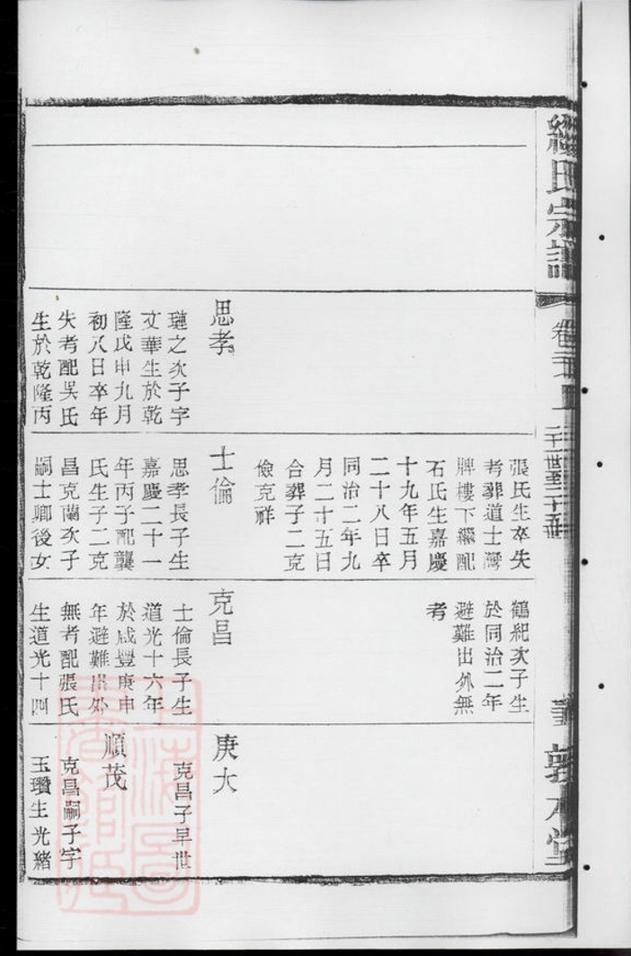 氏宗譜
卷
二十一世至二十五世
敦本堂
思孝
璉之次子字
文華生於乾
隆戊申九月
初八日卒年
失考配吳氏
生於乾隆丙
張氏生卒失
考葬道士灣
牌樓下繼配
石氏生嘉慶
十九年五月
二十八日卒
同治二年九
月二十五日
合葬子二克
儉克祥
士倫
思孝長子生
嘉慶二十一
年丙子配龔
氏生子二克
昌克蘭次子
嗣士卿後女
鶴紀次子生
於同治二年
避難出外無
考
克昌
士倫長子生
道光十六年
於咸豐庚申
年避難出外
無考配張氏
生道光十四
庚大
克昌子早世
順茂
克昌嗣子字
玉瓚生光緒